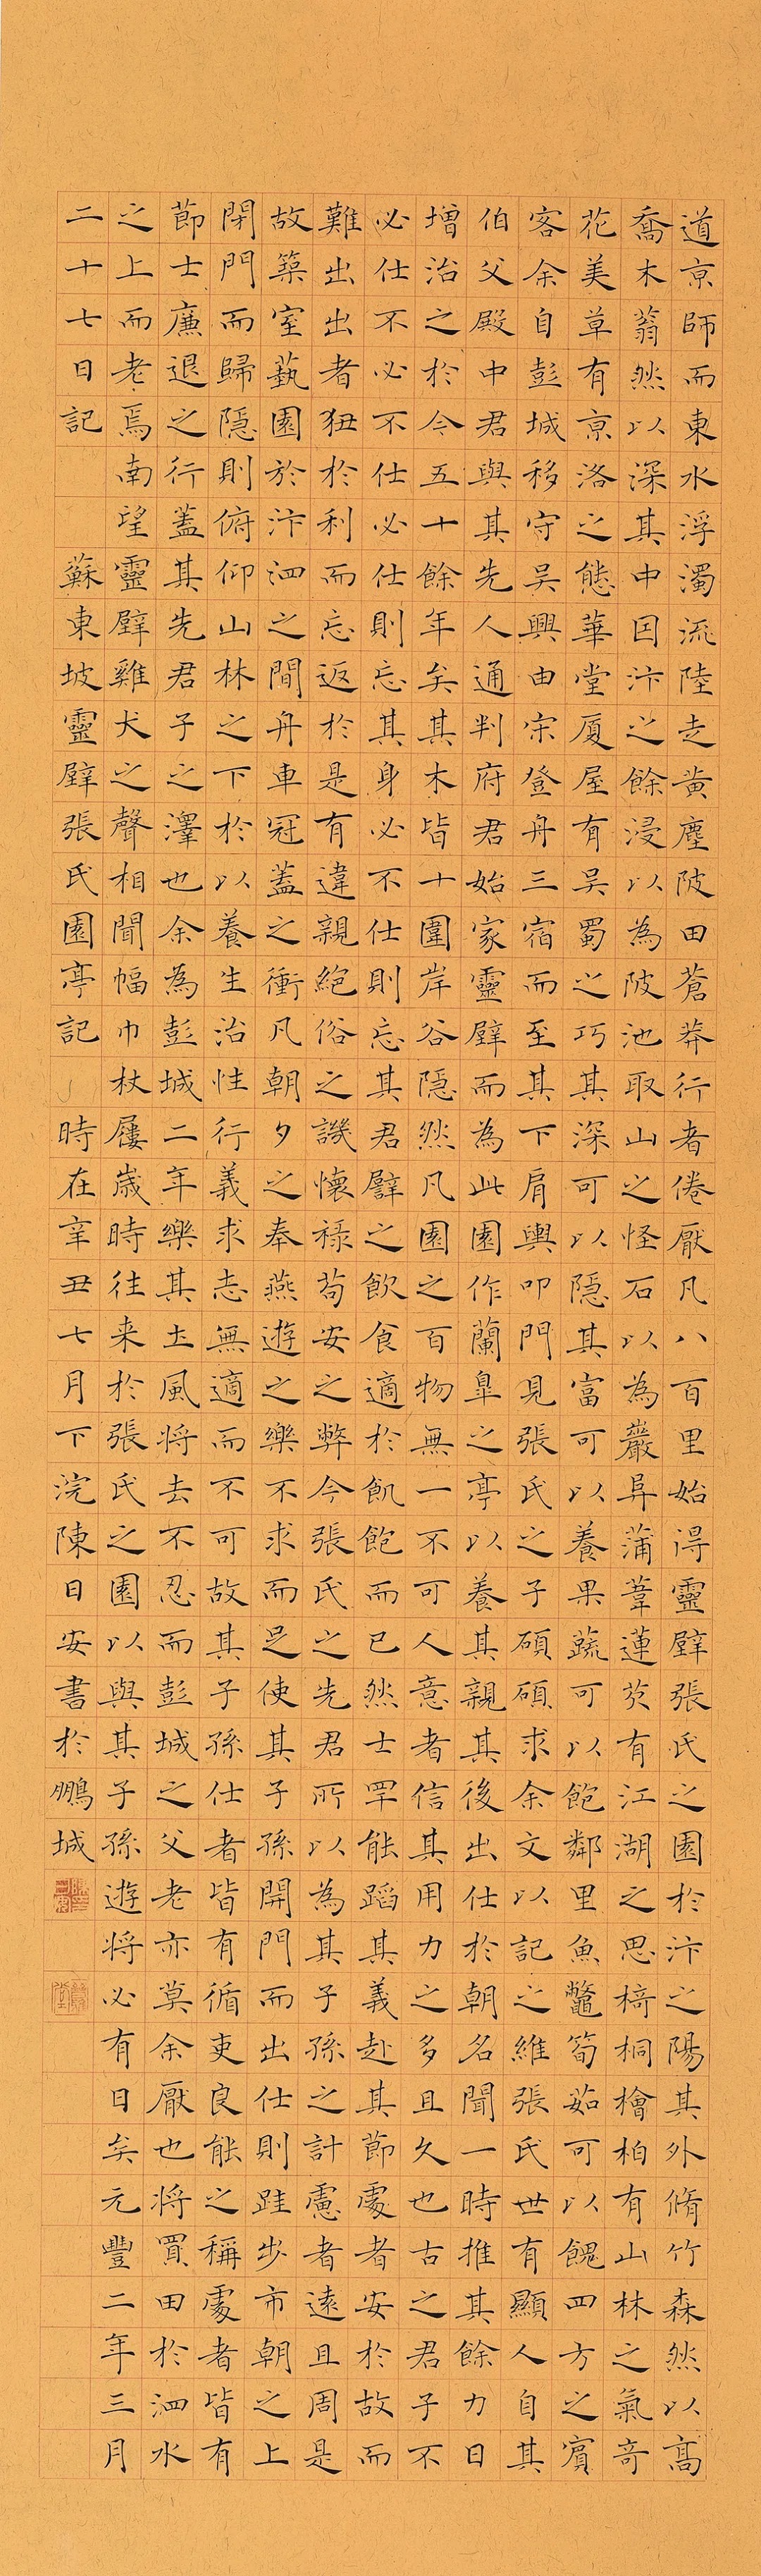 道京師而東水浮濁流陸走黃塵陂田蒼莽行者倦厭凡八百里始得靈壁張氏之園於汴之陽其外脩竹森然以高
喬木蓊然以深其中因汴之餘浸以為陂池取山之怪石以為巖阜蒲葦蓮芡有江湖之思椅桐檜柏有山林之氣奇
花美草有京洛之態華堂厦屋有吳蜀之巧其深可以隱其富可以養果蔬可以飽鄰里魚鼈筍茹可以餽四方之賓
客余自彭城移守吳興由宋登舟三宿而至其下肩輿叩門見張氏之子碩碩求余文以記之維張氏世有顯人自其
伯父殿中君與其先人通判府君始家靈壁而為此園作蘭皐之亭以養其親其後出仕於朝名聞一時推其餘力日
增治之於今五十餘年矣其木皆十圍岸谷隱然凡園之百物無一不可人意者信其用力之多且久也古之君子不
必仕不必不仕必仕則忘其身必不仕則忘其君譬之飲食適於飢飽而已然士罕能蹈其義赴其節處者安於故而
難出出者狃於利而忘返於是有違親絕俗之譏懷祿苟安之弊今張氏之先君所以為其子孫之計慮者遠且周是
故築室藝園於汴泗之間舟車冠蓋之衝凡朝夕之奉燕遊之樂不求而足使其子孫開門而出仕則跬步市朝之上
閉門而歸隱則俯仰山林之下於以養生治性行義求志無適而不可故其子孫仕者皆有循吏良能之稱處者皆有
節士廉退之行蓋其先君子之澤也余為彭城二年樂其土風将去不忍而彭城之父老亦莫余厭也将買田於泗水
之上而老焉南望靈壁雞犬之聲相聞幅巾杖屨歲時往来於張氏之園以與其子孫遊将必有日矣元豐二年三月
二十七日記 蘇東坡靈壁張氏園亭記 時在辛丑七月下浣陳日安書於鵬城